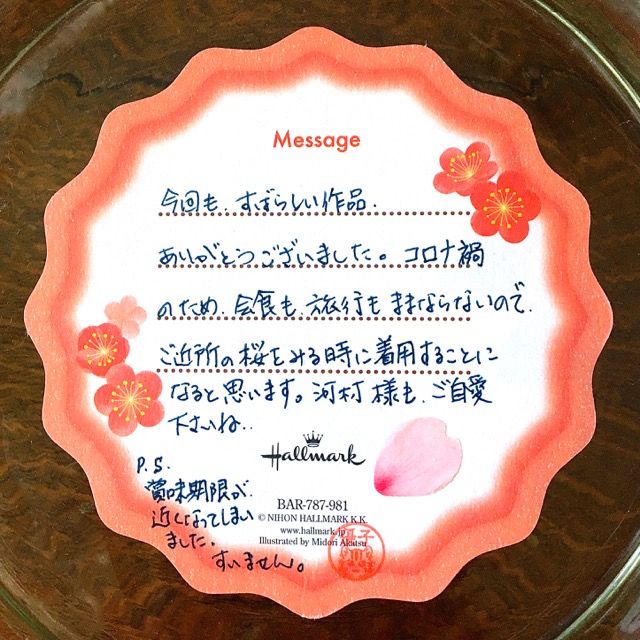 Message
今回も、すばらしい作品、
ありがとうございました。コロナ禍
のため、会食も、旅行も ままならないので、
ご近所の桜をみる時に着用することに
なると思います。河村様も、ご自愛
下さいね..
Hallmark
P.S.
賞味期限が
近くなってしまい
ました。
すいません。
BAR-787-981
© NIHON HALLMARK K.K.
www.hallmark.jp
Illustrated by Midori Akatsu
子